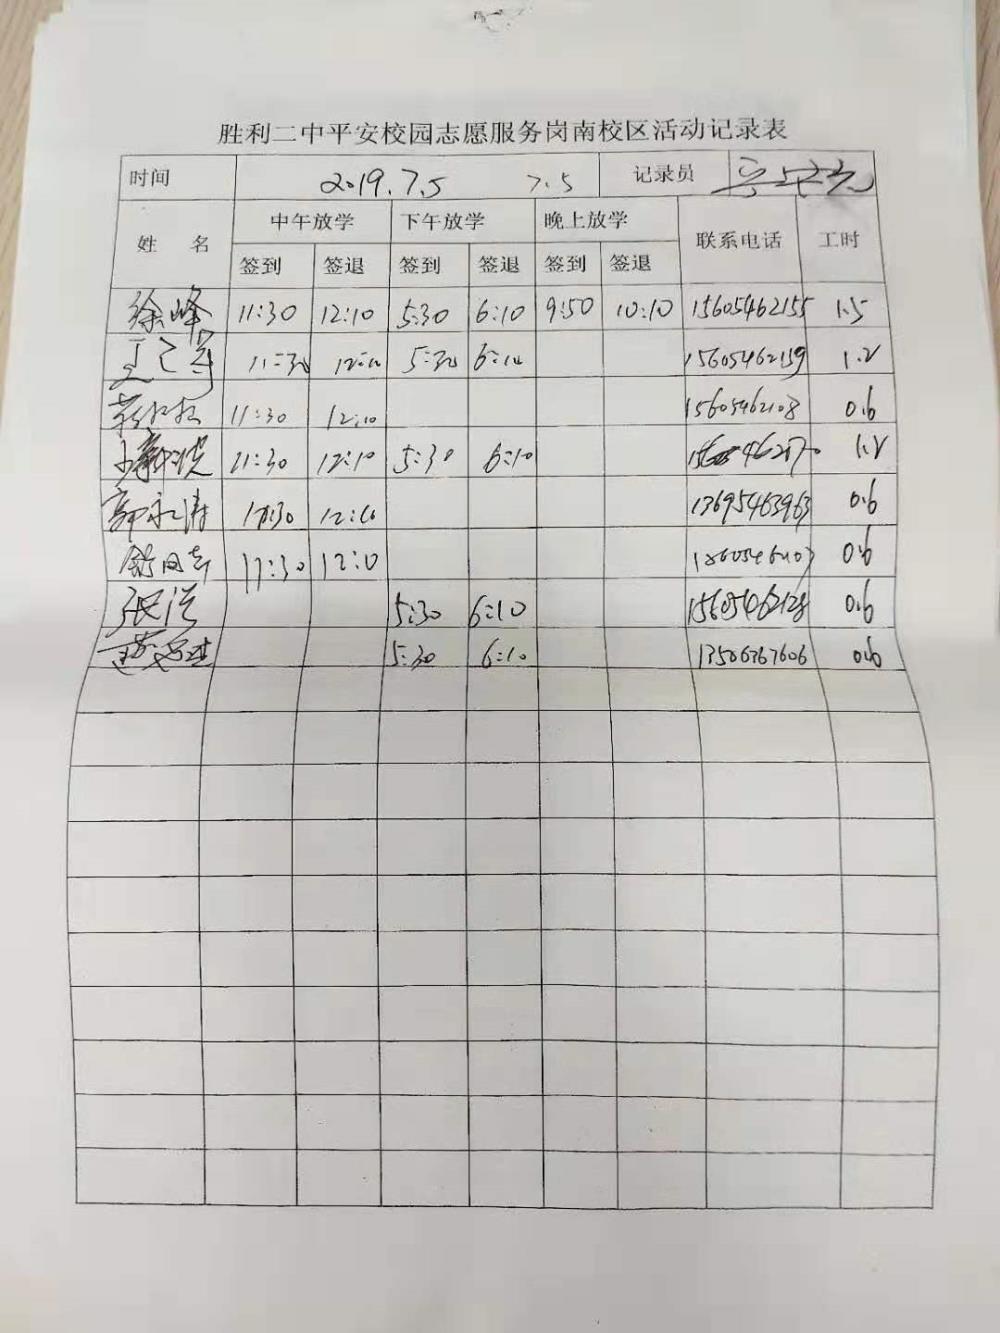 胜利二中平安校园志愿服务岗南校区活动记录表
时间 2019.7.5 7.5 记录员
姓 名 中午放学 下午放学 晚上放学 联系电话 工时
签到 签退 签到 签退 签到 签退
徐峰 11:30 12:10 5:30 6:10 9:50 10:10 15605462155 1.5
11:30 12:10 5:30 6:10 15605462159 1.2
11:30 12:10 15605462108 0.6
11:30 12:10 5:30 6:10 1.2
郭永涛 11:30 12:10 13695463963 0.6
11:30 12:10 0.6
张洪 5:30 6:10 15605462128 0.6
5:30 6:10 13506367606 0.6